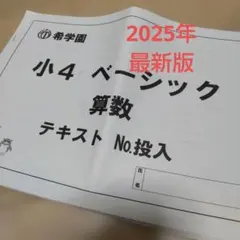 2025年
最新版
希学園
小4 ベーシック
算数
テキスト No.投入
氏名